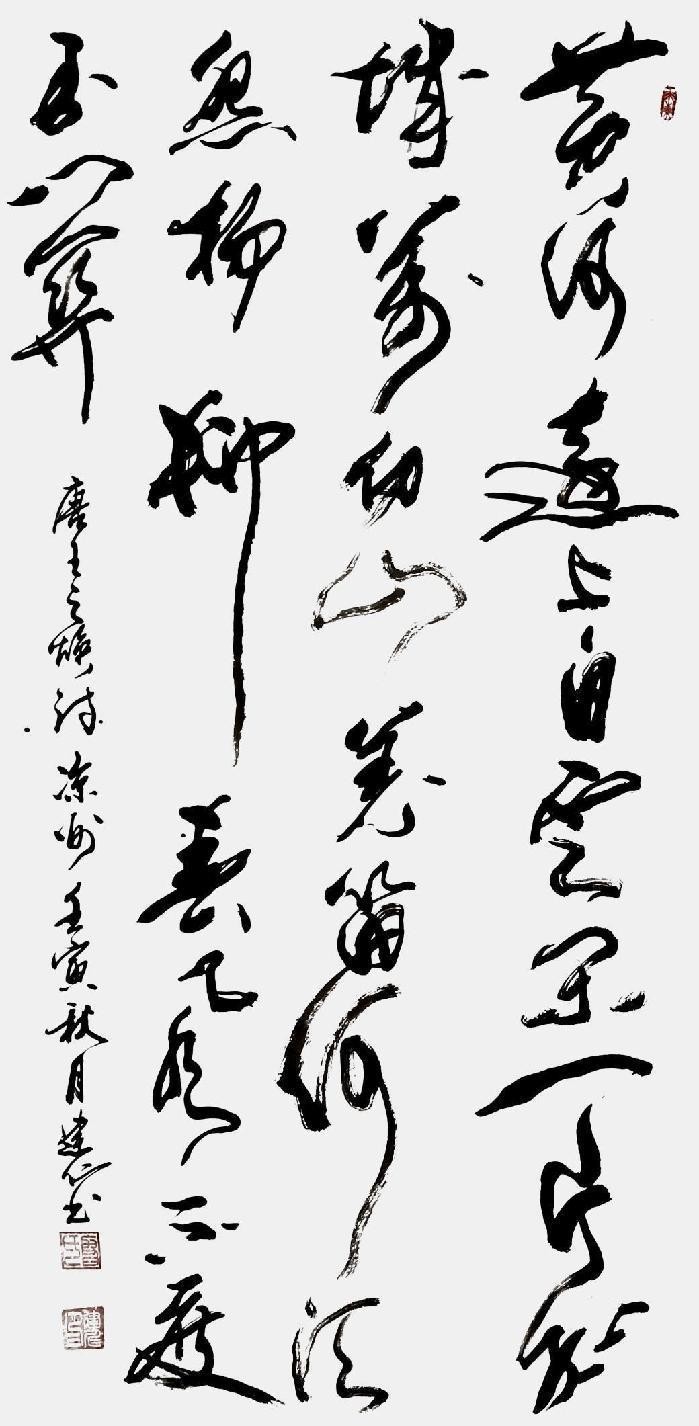 黄河遠上白雲間一片孤
城萬仞山羌笛何须
怨楊柳春风不度
玉门關
唐王之焕诗凉州壬寅秋月建书